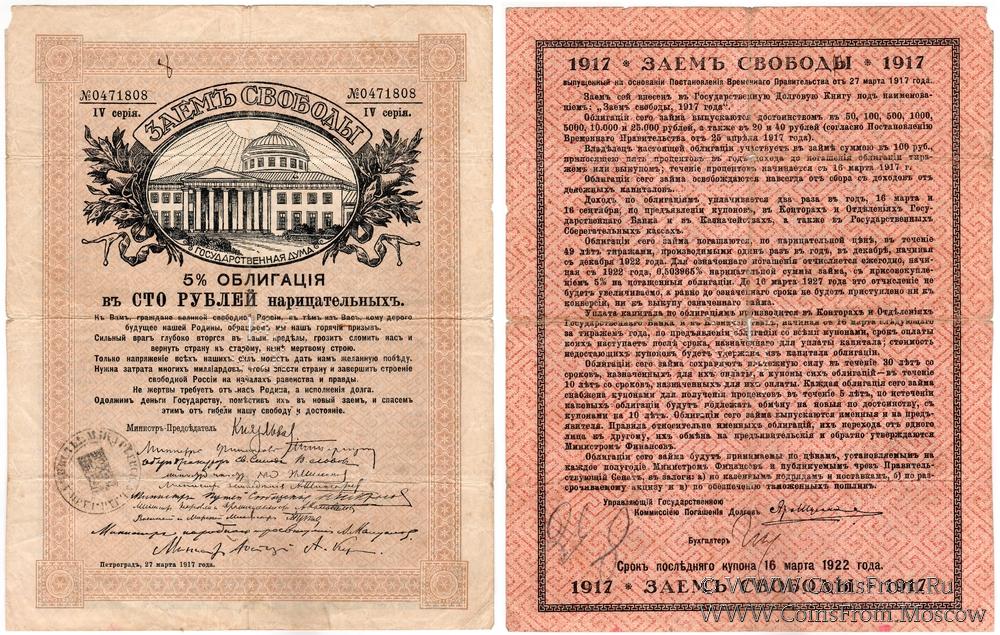 №0471808
№0471808
IV серія.
IV серія.
ЗАЕМЪ СВОБОДЫ
ГОСУДАРСТВЕННАЯ ДУМА
5% ОБЛИГАЦІЯ
въ СТО РУБЛЕЙ нарицательныхъ.
Къ Вамъ, граждане великой свободной Россіи, къ тѣмъ изъ Васъ, кому дорого
будущее нашей Родины, обращаемъ мы нашъ горячій призывъ.
Сильный врагъ глубоко вторгся въ наши предѣлы, грозитъ сломить насъ и
вернуть страну къ старому, нынѣ мертвому строю.
Только напряженіе всѣхъ нашихъ силъ можетъ дать намъ желанную побѣду.
Нужна затрата многихъ милліардовъ, чтобы спасти страну и завершить строеніе
свободной Россіи на началахъ равенства и правды.
Не жертвы требуетъ отъ насъ Родина, а исполненія долга.
Одолжимъ деньги Государству, помѣстивъ ихъ въ новый заемъ, и спасемъ
этимъ отъ гибели нашу свободу и достояніе.
Министръ-Предсѣдатель Князь Львов
Министръ финансовъ
Оберъ-прокуроръ Св. Синода В. Львовъ
Министръ Путей Сообщенія
Министръ народнаго просвѣщенія А. Мануиловъ
Министръ Юстиціи А. Кер
Петроградъ, 27 марта 1917 года.
1917 * ЗАЕМЪ СВОБОДЫ * 1917
выпущенный на основаніи Постановленія Временнаго Правительства отъ 27 марта 1917 года.
Заемъ сей внесенъ въ Государственную Долговую Книгу подъ наименова-
ніемъ: „Заемъ свободы, 1917 года“.
Облигаціи сего займа выпускаются достоинствомъ въ 50, 100, 500, 1000,
5000, 10.000 и 25.000 рублей, а также въ 20 и 40 рублей (согласно Постановленію
Временнаго Правительства отъ 25 апрѣля 1917 года).
Владѣлецъ настоящей облигаціи участвуетъ въ займѣ суммою въ 100 руб.,
приносящею пять процентовъ въ годъ дохода до погашенія облигаціи тира-
жемъ или выкупомъ; теченіе процентовъ начинается съ 16 марта 1917 г.
Облигаціи сего займа освобождаются навсегда отъ сбора съ доходовъ отъ
денежныхъ капиталовъ.
Доходъ по облигаціямъ уплачивается два раза въ годъ, 16 марта и
16 сентября, по предъявленіи купоновъ, въ Конторахъ и Отдѣленіяхъ Госу-
дарственнаго Банка и Казначействахъ, а также въ Государственныхъ
Сберегательныхъ кассахъ.
Облигаціи сего займа погашаются, по нарицательной цѣнѣ, въ теченіе
49 лѣтъ тиражами, производимыми одинъ разъ въ годъ, въ декабрѣ, начиная
съ декабря 1922 года. Для означеннаго погашенія отчисляется ежегодно, начи-
ная съ 1922 года, 0,503965% нарицательной суммы займа, съ присовокупле-
ніемъ 5% на погашенныя облигаціи. До 16 марта 1927 года это отчисленіе не
будетъ увеличиваемо, а равно до означеннаго срока не будетъ приступлено ни къ
конверсіи, ни къ выкупу означеннаго займа.
Уплата капитала по облигаціямъ производится въ Конторахъ и Отдѣленіяхъ
Государственнаго Банка и въ Казначействахъ, начиная съ 16 марта слѣдующаго
за тиражемъ года, по предъявленіи облигаціи со всѣми купонами, срокъ оплаты
коихъ наступаетъ послѣ срока, назначеннаго для уплаты капитала; стоимость
недостающихъ купоновъ будетъ удержана изъ капитала облигаціи.
Облигаціи сего займа сохраняютъ платежную силу въ теченіе 30 лѣтъ со
сроковъ, назначенныхъ для ихъ оплаты, а купоны сихъ облигацій—въ теченіе
10 лѣтъ со сроковъ, назначенныхъ для ихъ оплаты. Каждая облигація сего займа
снабжена купонами для полученія процентовъ въ теченіе 5 лѣтъ, по истеченіи
каковыхъ облигаціи будутъ подлежать обмѣну на новыя по достоинству, съ
купонами на 10 лѣтъ. Облигаціи сего займа выпускаются именныя и на пред-
явителя. Правила относительно именныхъ облигацій, ихъ перехода отъ одного
лица къ другому, ихъ обмѣна на предъявительскія и обратно утверждаются
Министромъ Финансовъ.
Облигаціи сего займа будутъ принимаемы по цѣнамъ, установляемымъ на
каждое полугодіе Министромъ Финансовъ и публикуемымъ чрезъ Правитель-
ствующій Сенатъ, въ залоги: а) по казеннымъ подрядамъ и поставкамъ, б) по раз-
срочиваемому акцизу и в) по обезпеченію таможенныхъ пошлинъ.
Управляющій Государственною
Коммиссіею Погашенія Долговъ
Бухгалтеръ
Срокъ послѣдняго купона 16 марта 1922 года.
1917 * ЗАЕМЪ СВОБОДЫ * 1917
© WWW.CoinsFrom.Ru
WWW.CoinsFrom.Moscow